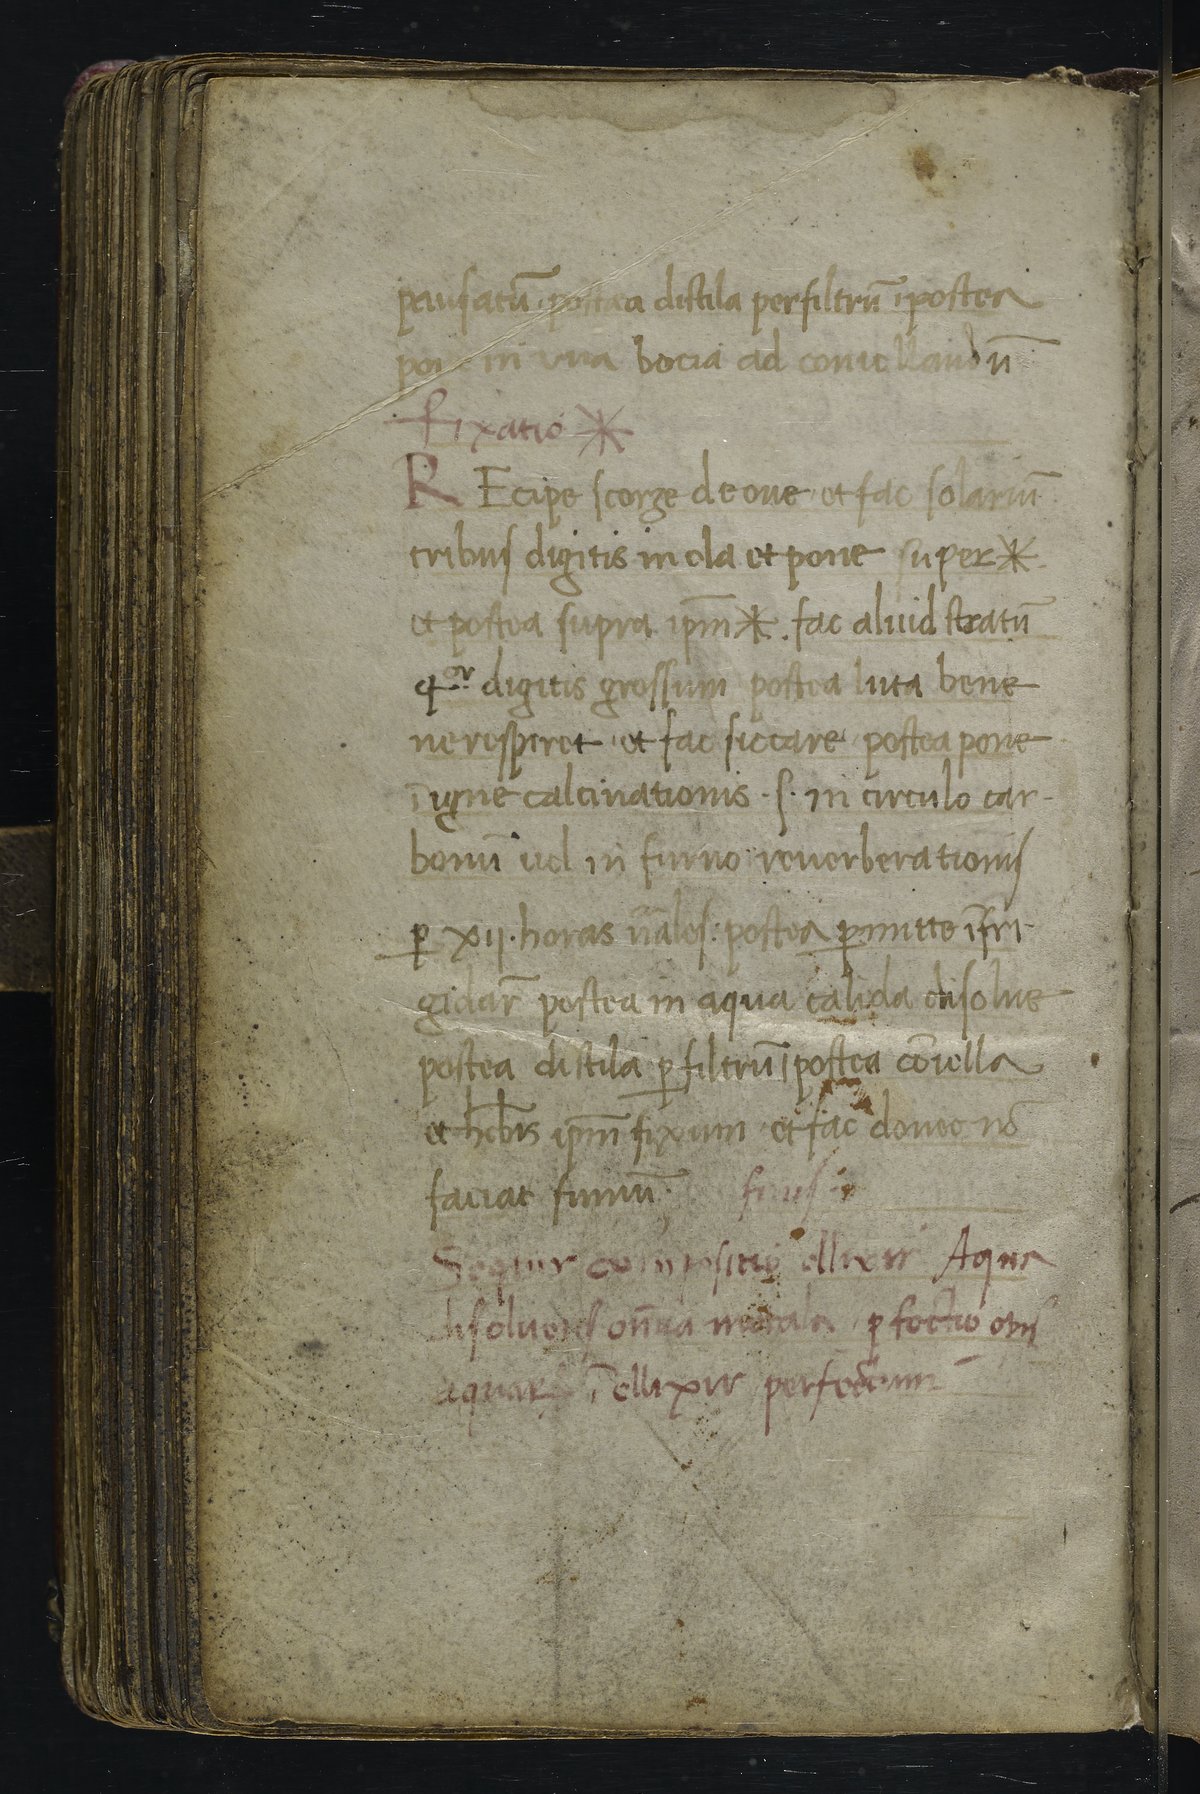 pausatū. postea distila perfiltrū ⁊ postea
pone in una bocia ad congellandū
fixatio *
REcipe scorze deoue et fac solariū
tribus digitis in ola et pone super *.
et postea supra ip̄m *. fac aliud stratū
qͦr. digitis grossum postea luta bene
ne respiret et fac siccare postea pone
ī igne calcinationis .s. in circulo car-
bonū uel in furno reuerberationis
ꝑ xij. horas postea ꝑmitte īfri-
gidar̄ postea in aqua calida disolue
postea distila ꝑ filtrū ⁊ postea
et ip̄m fixum et fac donec nō
faciat fumū. finis
Seqitur compositio ellixir Aqua
disoluens om̄ia metala ꝑfectio
aquar ī ellixir perfectum